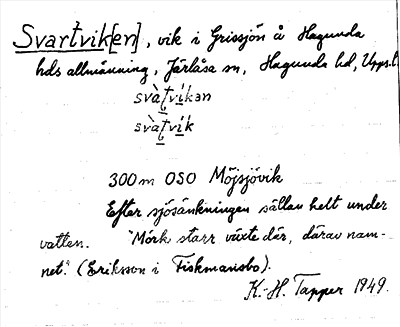 Svartvik[en], vik i Grissjön å Hagunda
hds allmänning, Järlåsa sn, Hagunda hd, Upps. l.
svàt̩víkən
svàt̩vík
300 m OSO Möjsjövik
Efter sjösänkningen sällan helt under
vatten. "Mörk starr växte där, därav nam-
net." (Eriksson i Fiskmansbo).
K.-H. Tapper 1949.